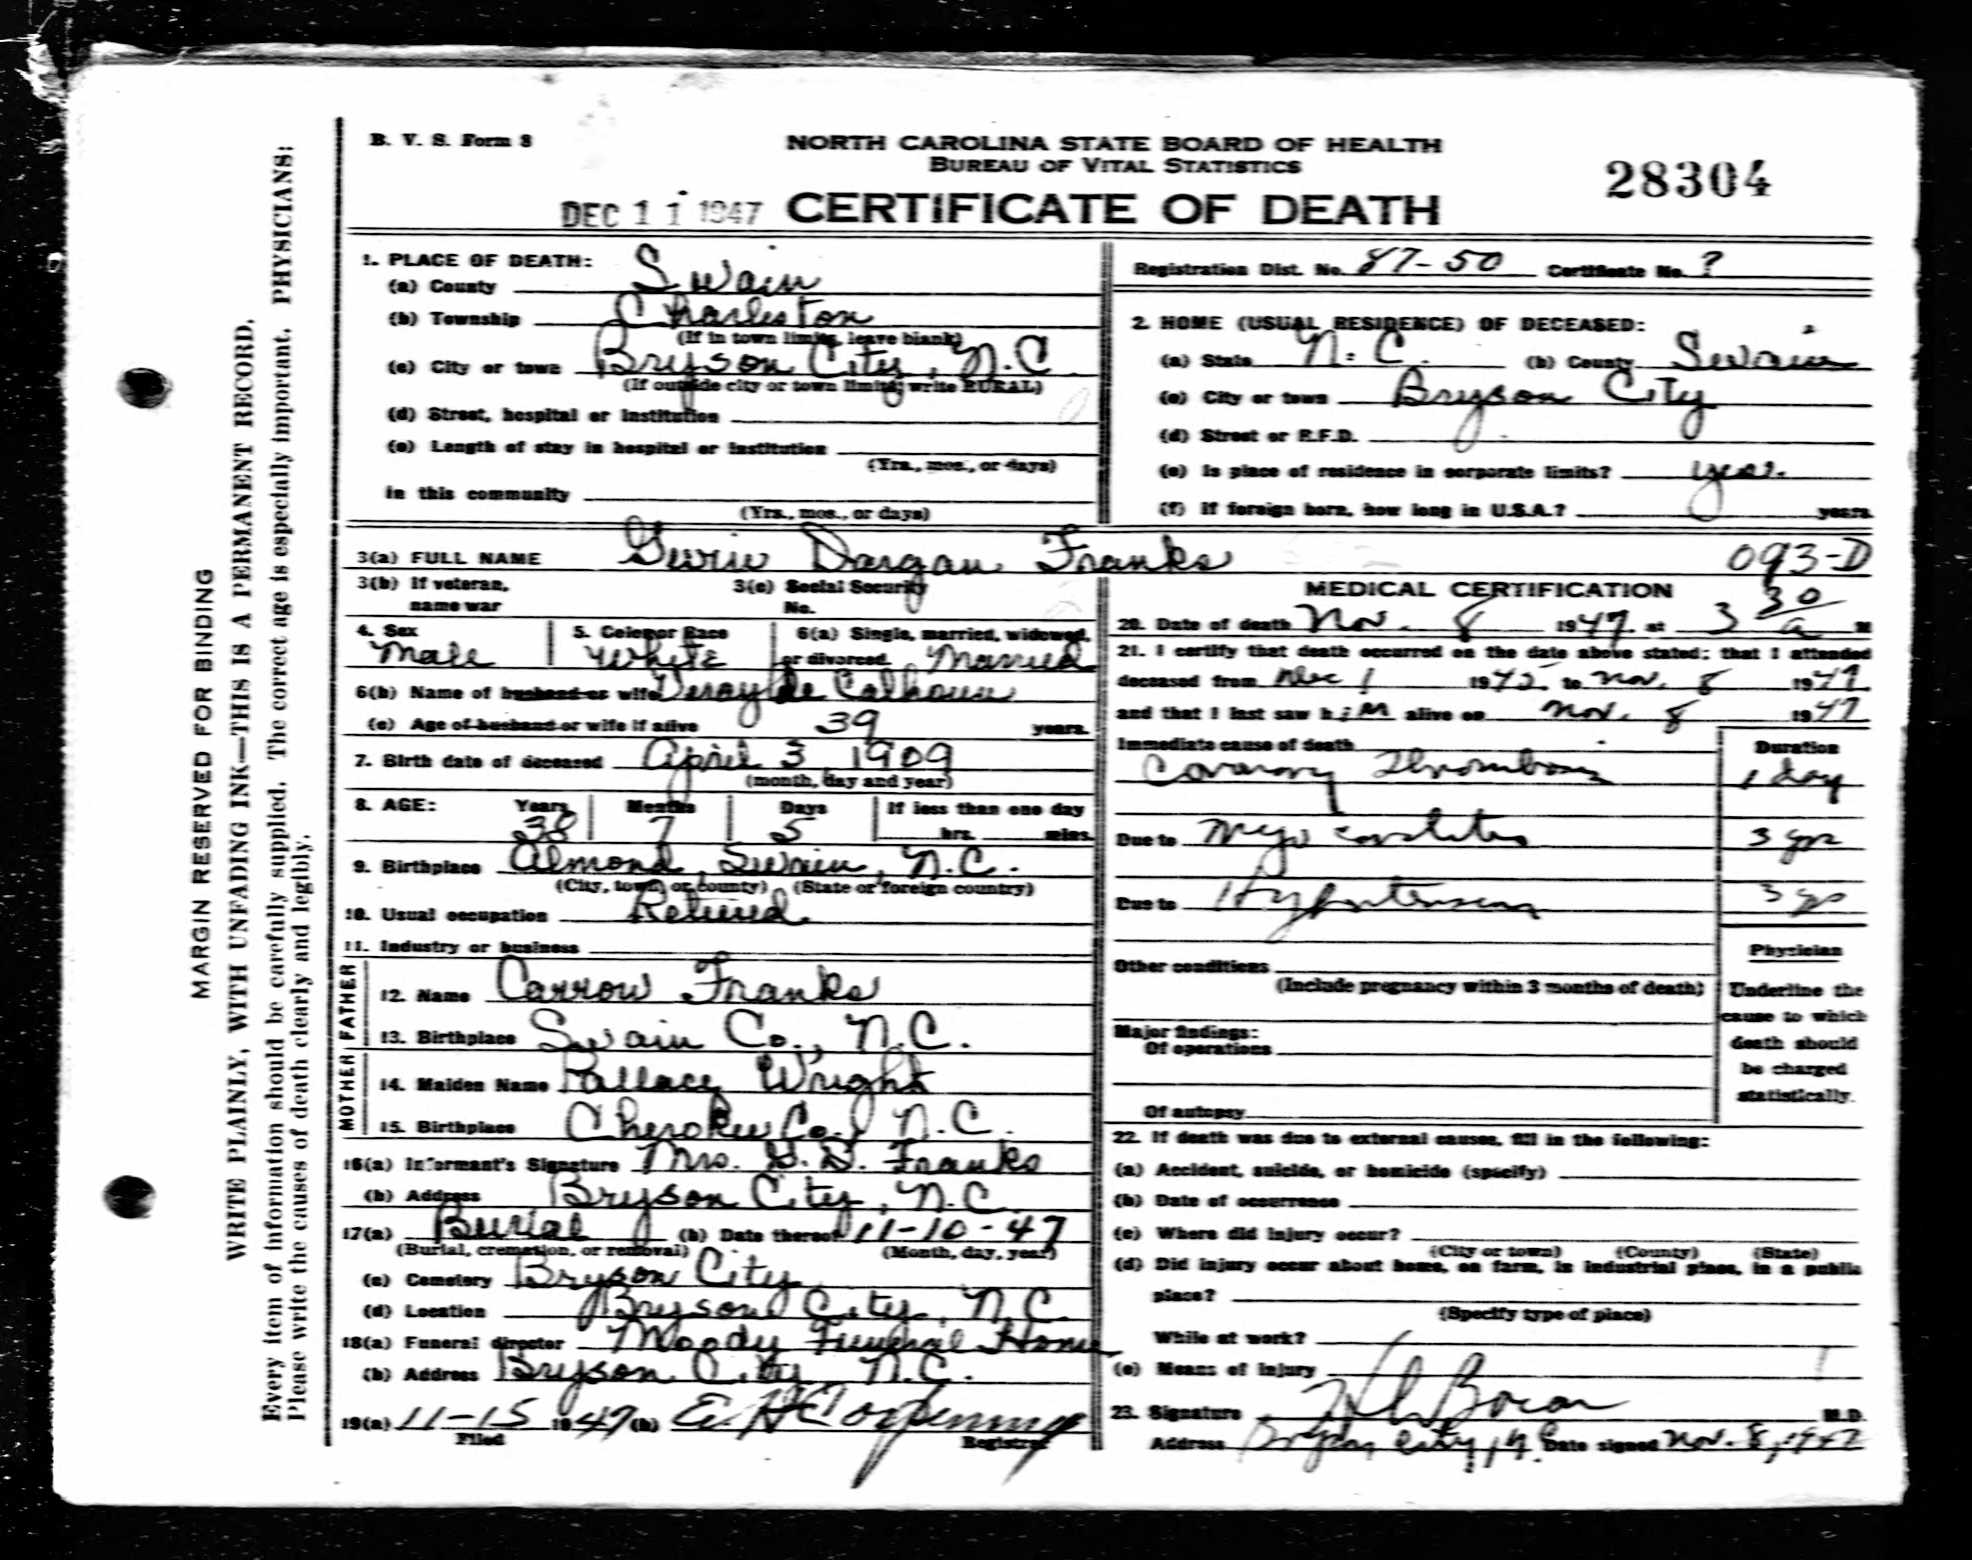 B. V. S. Form 8
NORTH CAROLINA STATE BOARD OF HEALTH
BUREAU OF VITAL STATISTICS
28304
DEC 11 1947 CERTIFICATE OF DEATH
MARGIN RESERVED FOR BINDING
WRITE PLAINLY, WITH UNFADING INK—THIS IS A PERMANENT RECORD.
Every item of information should be carefully supplied. The correct age is especially important. PHYSICIANS:
Please write the causes of death clearly and legibly.
1. PLACE OF DEATH:
(a) County Swain
(b) Township Charleston
(If in town limits, leave blank)
(c) City or town Bryson City, N.C.
(If outside city or town limits, write RURAL)
(d) Street, hospital or institution
(e) Length of stay in hospital or institution
(Yrs., mos., or days)
in this community
(Yrs., mos., or days)
Registration Dist. No. 87-50 Certificate No. ?
2. HOME (USUAL RESIDENCE) OF DECEASED:
(a) State N.C. (b) County Swain
(c) City or town Bryson City
(d) Street or R.F.D.
(e) Is place of residence in corporate limits? yes.
(f) If foreign born, how long in U.S.A.? years.
3(a) FULL NAME Dargan Franks
093-D
3(b) If veteran, name war
3(c) Social Security No.
4. Sex Male
5. Color or Race White
6(a) Single, married, widowed, or divorced Married
6(b) Name of husband or wife Calhoun
(c) Age of husband or wife if alive 39 years.
7. Birth date of deceased April 3, 1909
(month, day and year)
8. AGE: Years Months Days If less than one day
38 7 5 hrs. mins.
9. Birthplace Almond, Swain, N.C.
(City, town, or county) (State or foreign country)
10. Usual occupation Retired
11. Industry or business
FATHER
12. Name Carrow Franks
13. Birthplace Swain Co., N.C.
MOTHER
14. Maiden Name Pallace Wright
15. Birthplace Cherokee Co., N.C.
16(a) Informant's Signature Mrs. G. D. Franks
(b) Address Bryson City, N.C.
17(a) Burial (b) Date thereof 11-10-47
(Burial, cremation, or removal) (Month, day, year)
(c) Cemetery Bryson City
(d) Location Bryson City, N.C.
18(a) Funeral director Moody Funeral Home
(b) Address Bryson City N.C.
19(a) 11-15 1947 (b) E. H. Corpening
Filed Registrar
MEDICAL CERTIFICATION
20. Date of death Nov. 8 1947 at 3 30 a M
21. I certify that death occurred on the date above stated; that I attended
deceased from Dec 1 1945 to Nov. 8 1947
and that I last saw him alive on Nov. 8 1947
Immediate cause of death Duration
Coronary Thrombosis 1 day
Due to Myocarditis 3 yrs
Due to Hypertension 3 yrs
Other conditions
(Include pregnancy within 3 months of death)
Major findings:
Of operations
Of autopsy
Physician
Underline the
cause to which
death should
be charged
statistically.
22. If death was due to external causes, fill in the following:
(a) Accident, suicide, or homicide (specify)
(b) Date of occurrence
(c) Where did injury occur?
(City or town) (County) (State)
(d) Did injury occur about home, on farm, in industrial place, in a public
place?
(Specify type of place)
While at work?
(e) Means of injury
23. Signature M.D.
Address Bryson City, N. Date signed Nov. 8, 1947